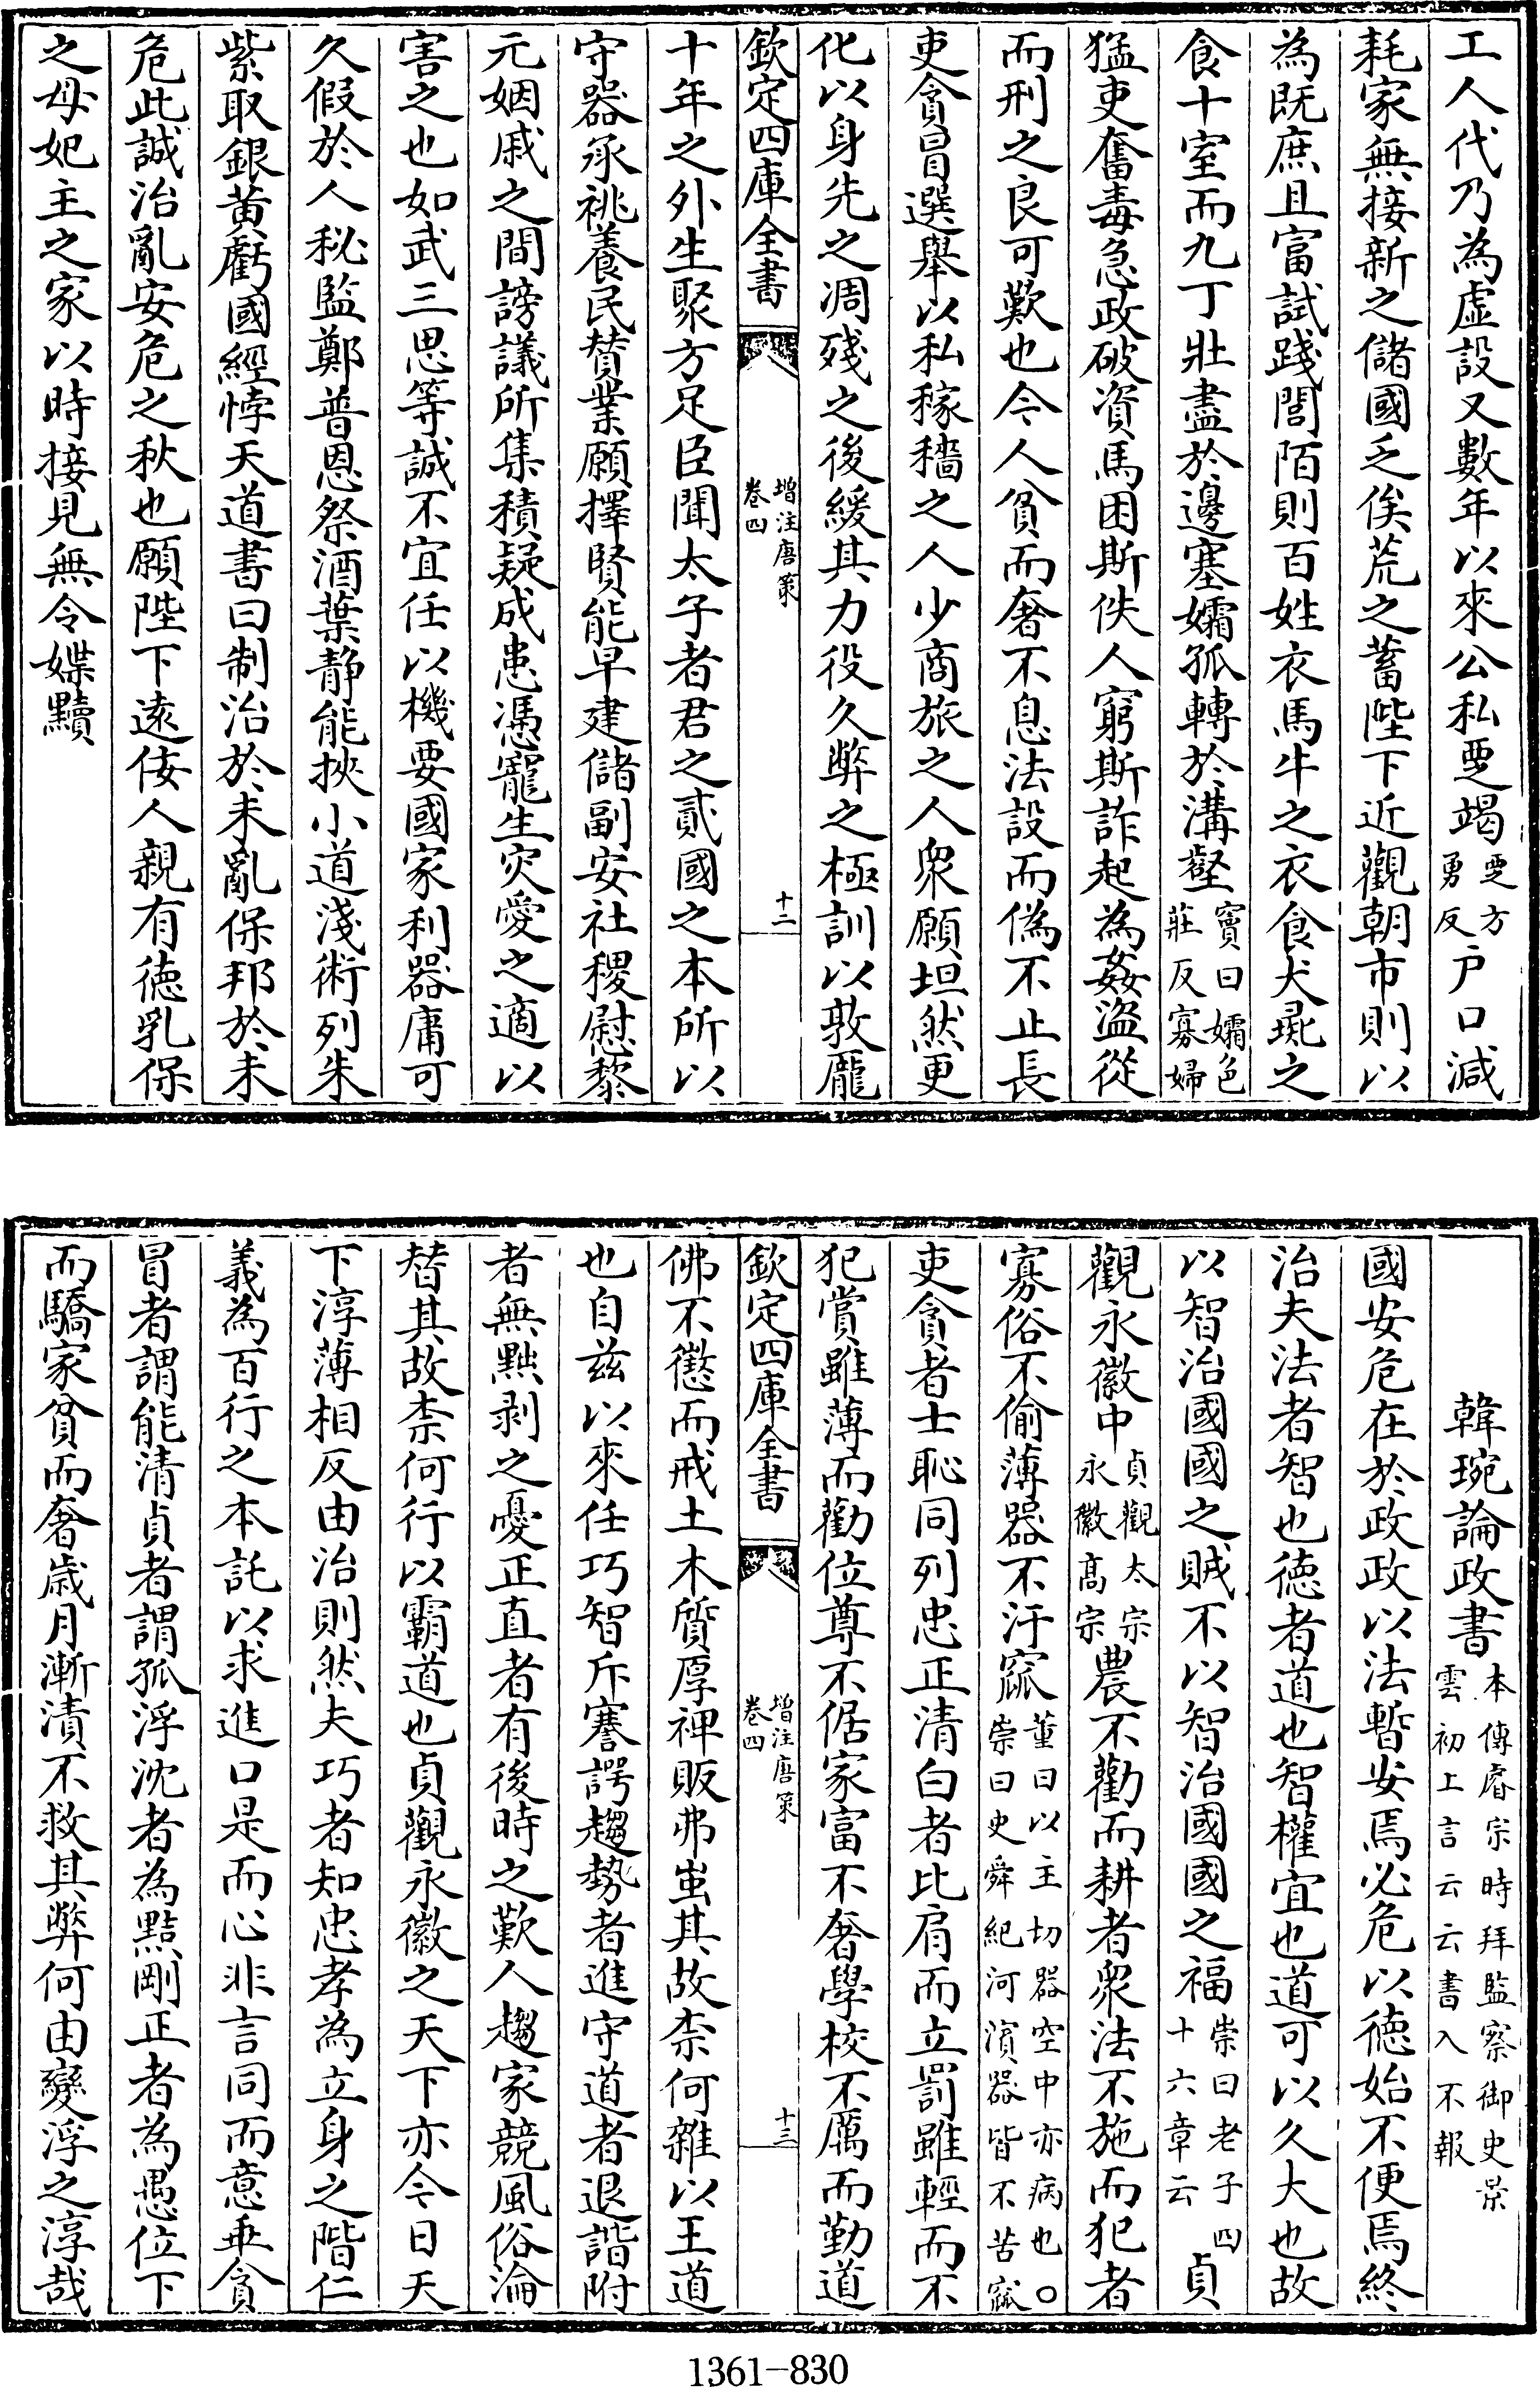 工人代乃為虛設又數年以來公私覂竭覂方勇反戶口減
耗家無接新之儲國乏俟荒之蓄陛下近觀朝市則以
為既庶且富試踐閭陌則百姓衣馬牛之衣食犬彘之
食十室而九丁壯盡於邊塞孀孤轉於溝壑竇曰孀色莊反寡婦
猛吏奮毒急政破資馬困斯佚人窮斯詐起為姦盜從
而刑之良可歎也今人貧而奢不息法設而偽不止長
吏貪冒選舉以私稼穡之人少商旅之人衆願坦然更
化以身先之凋殘之後緩其力役久弊之極訓以敦龐
欽定四庫全書
增注唐策
卷四
十二
十年之外生聚方足臣聞太子者君之貳國之本所以
守器承祧養民贊業願擇賢能早建儲副安社稷慰黎
元姻戚之間謗議所集積疑成患憑寵生灾愛之適以
害之也如武三思等誠不宜任以機要國家利器庸可
久假於人秘監鄭普恩祭酒葉静能挾小道淺術列朱
紫取銀黄虧國經悖天道書曰制治於未亂保邦於未
危此誠治亂安危之秋也願陛下遠佞人親有德乳保
之母妃主之家以時接見無令媟黷
韓琬論政書本傳睿宗時拜監察御史景雲初上言云云書入不報
國安危在於政政以法暫安焉必危以德始不便焉終
治夫法者智也德者道也智權宜也道可以久大也故
以智治國國之賊不以智治國國之福崇曰老子四十六章云貞
觀永徽中貞觀太宗永徽髙宗農不勸而耕者衆法不施而犯者
寡俗不偷薄器不汙窳董曰以主切器空中亦病也〇崇曰史舜紀河濱器皆不苦窳
吏貪者士恥同列忠正清白者比肩而立罰雖輕而不
犯賞雖薄而勸位尊不倨家富不奢學校不厲而勤道
欽定四庫全書
增注唐策
卷四
十三
佛不懲而戒土木質厚裨販弗蚩其故柰何雜以王道
也自兹以來任巧智斥謇諤趨勢者進守道者退諧附
者無黜剥之憂正直者有後時之歎人趨家競風俗淪
替其故柰何行以霸道也貞觀永徽之天下亦今日天
下淳薄相反由治則然夫巧者知忠孝為立身之階仁
義為百行之本託以求進口是而心非言同而意乖貪
冒者謂能清貞者謂孤浮沈者為黠剛正者為愚位下
而驕家貧而奢歲月漸漬不救其弊何由變浮之淳哉
1361-830